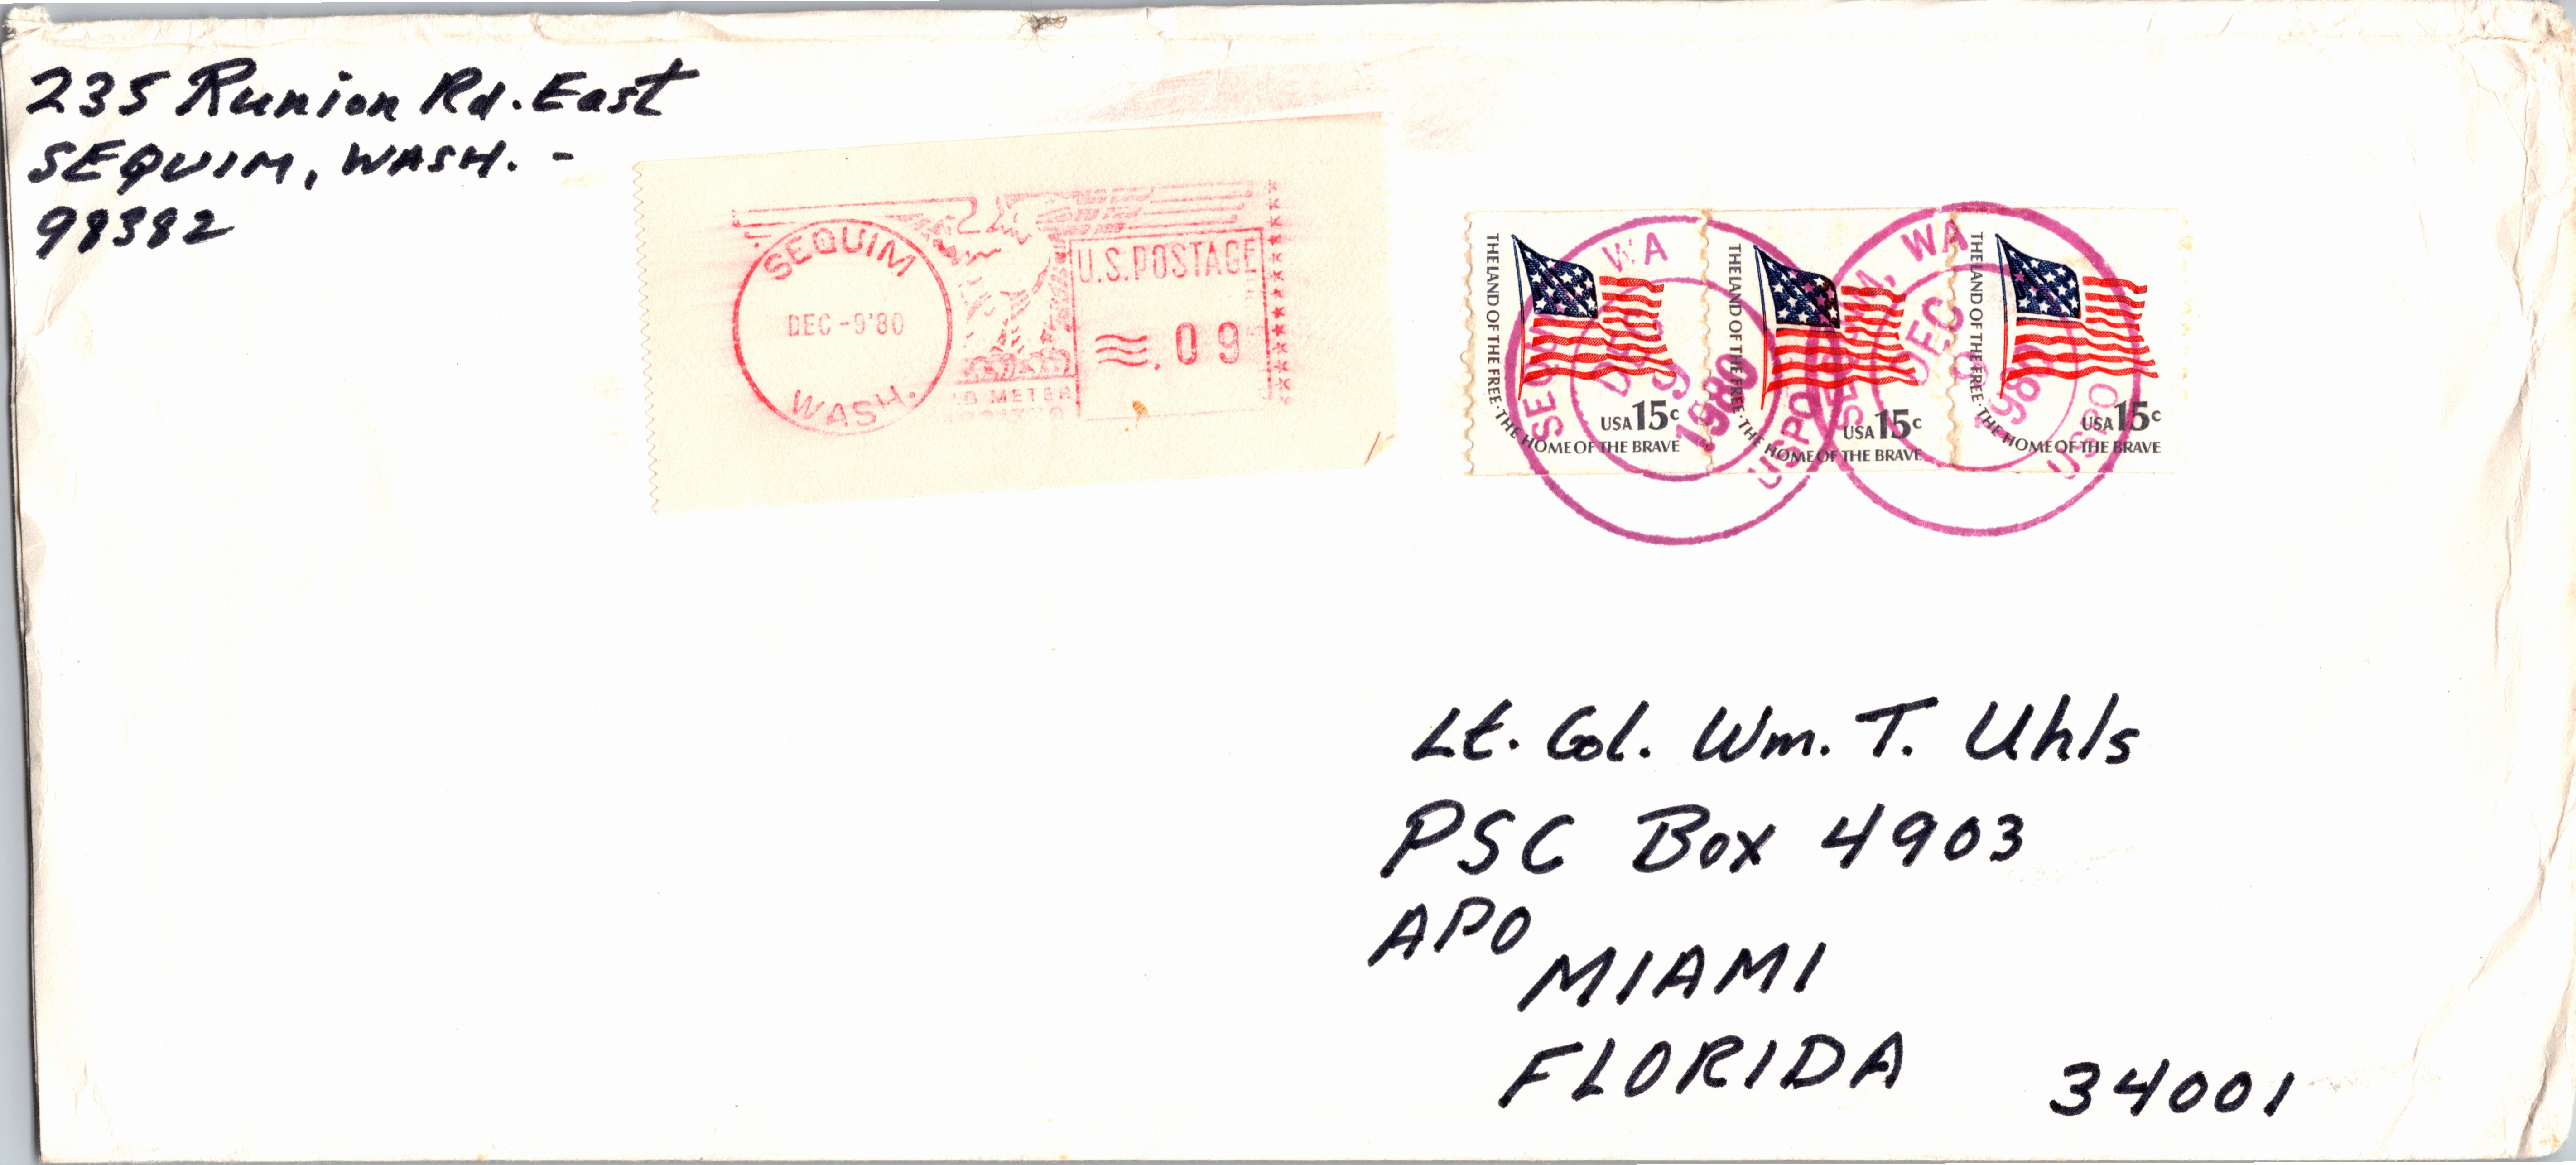 235 Runion Rd. East
SEQUIM, WASH. -
98382
SEQUIM
DEC -9'80
WASH.
U.S. POSTAGE
.09
METER
THE LAND OF THE FREE · THE HOME OF THE BRAVE
USA 15c
THE LAND OF THE FREE · THE HOME OF THE BRAVE
USA 15c
THE LAND OF THE FREE · THE HOME OF THE BRAVE
USA 15c
SEQUIM, WA
DEC
9
1980
USPO
SEQUIM, WA
DEC
9
1980
USPO
Lt. Col. Wm. T. Uhls
PSC Box 4903
APO
MIAMI
FLORIDA 34001